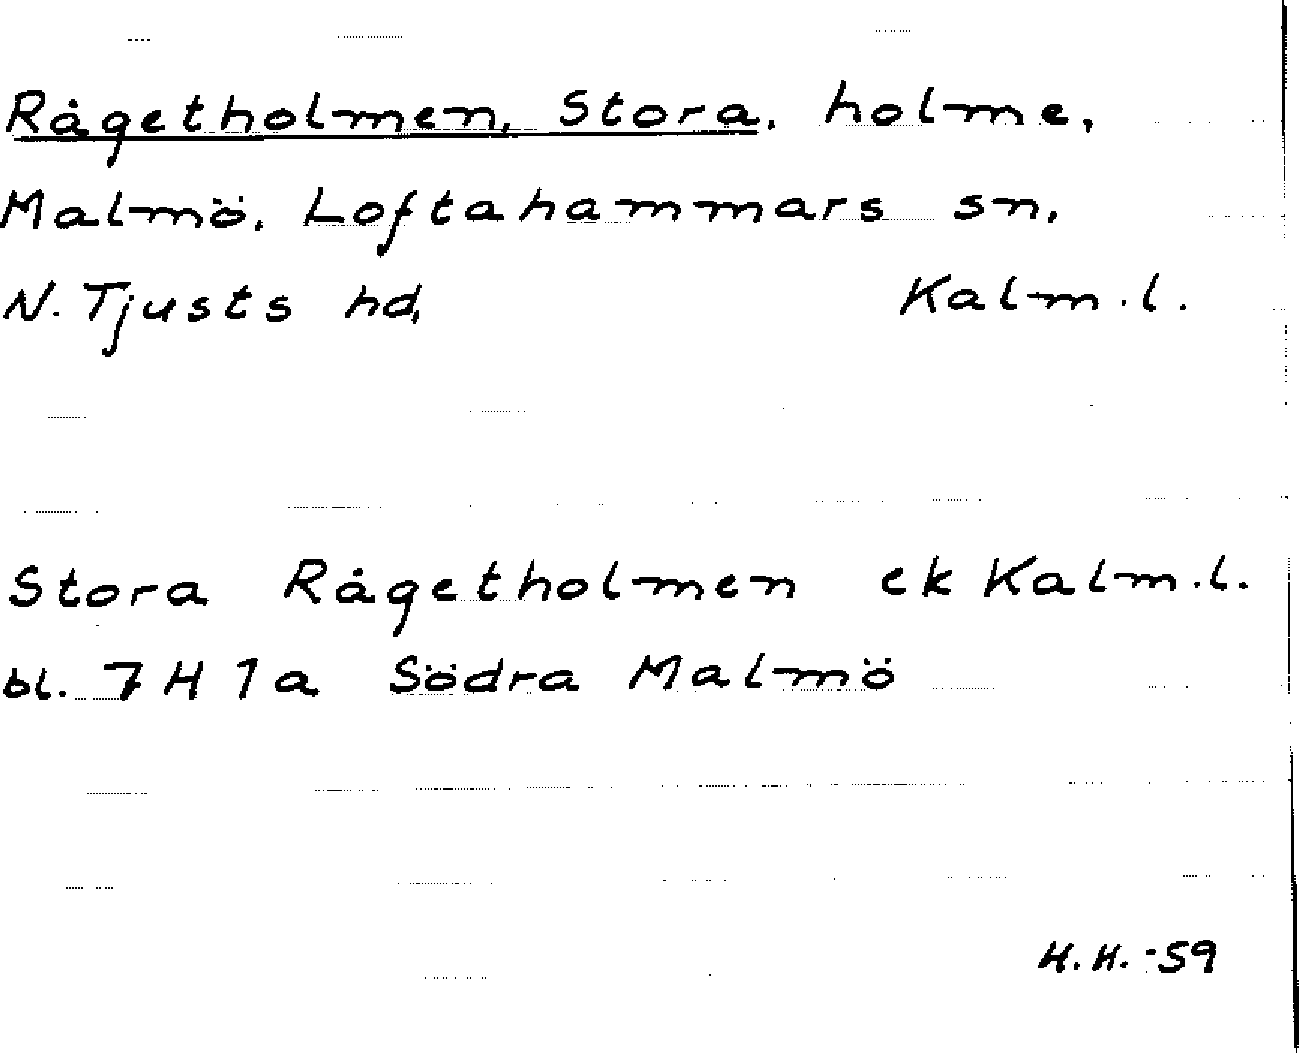 Rågetholmen, Stora, holme,
Malmö, Loftahammars sn,
N. Tjusts hd, Kalm. l.
Stora Rågetholmen ek Kalm. l.
bl. 7 H 1a Södra Malmö
H. H. -59